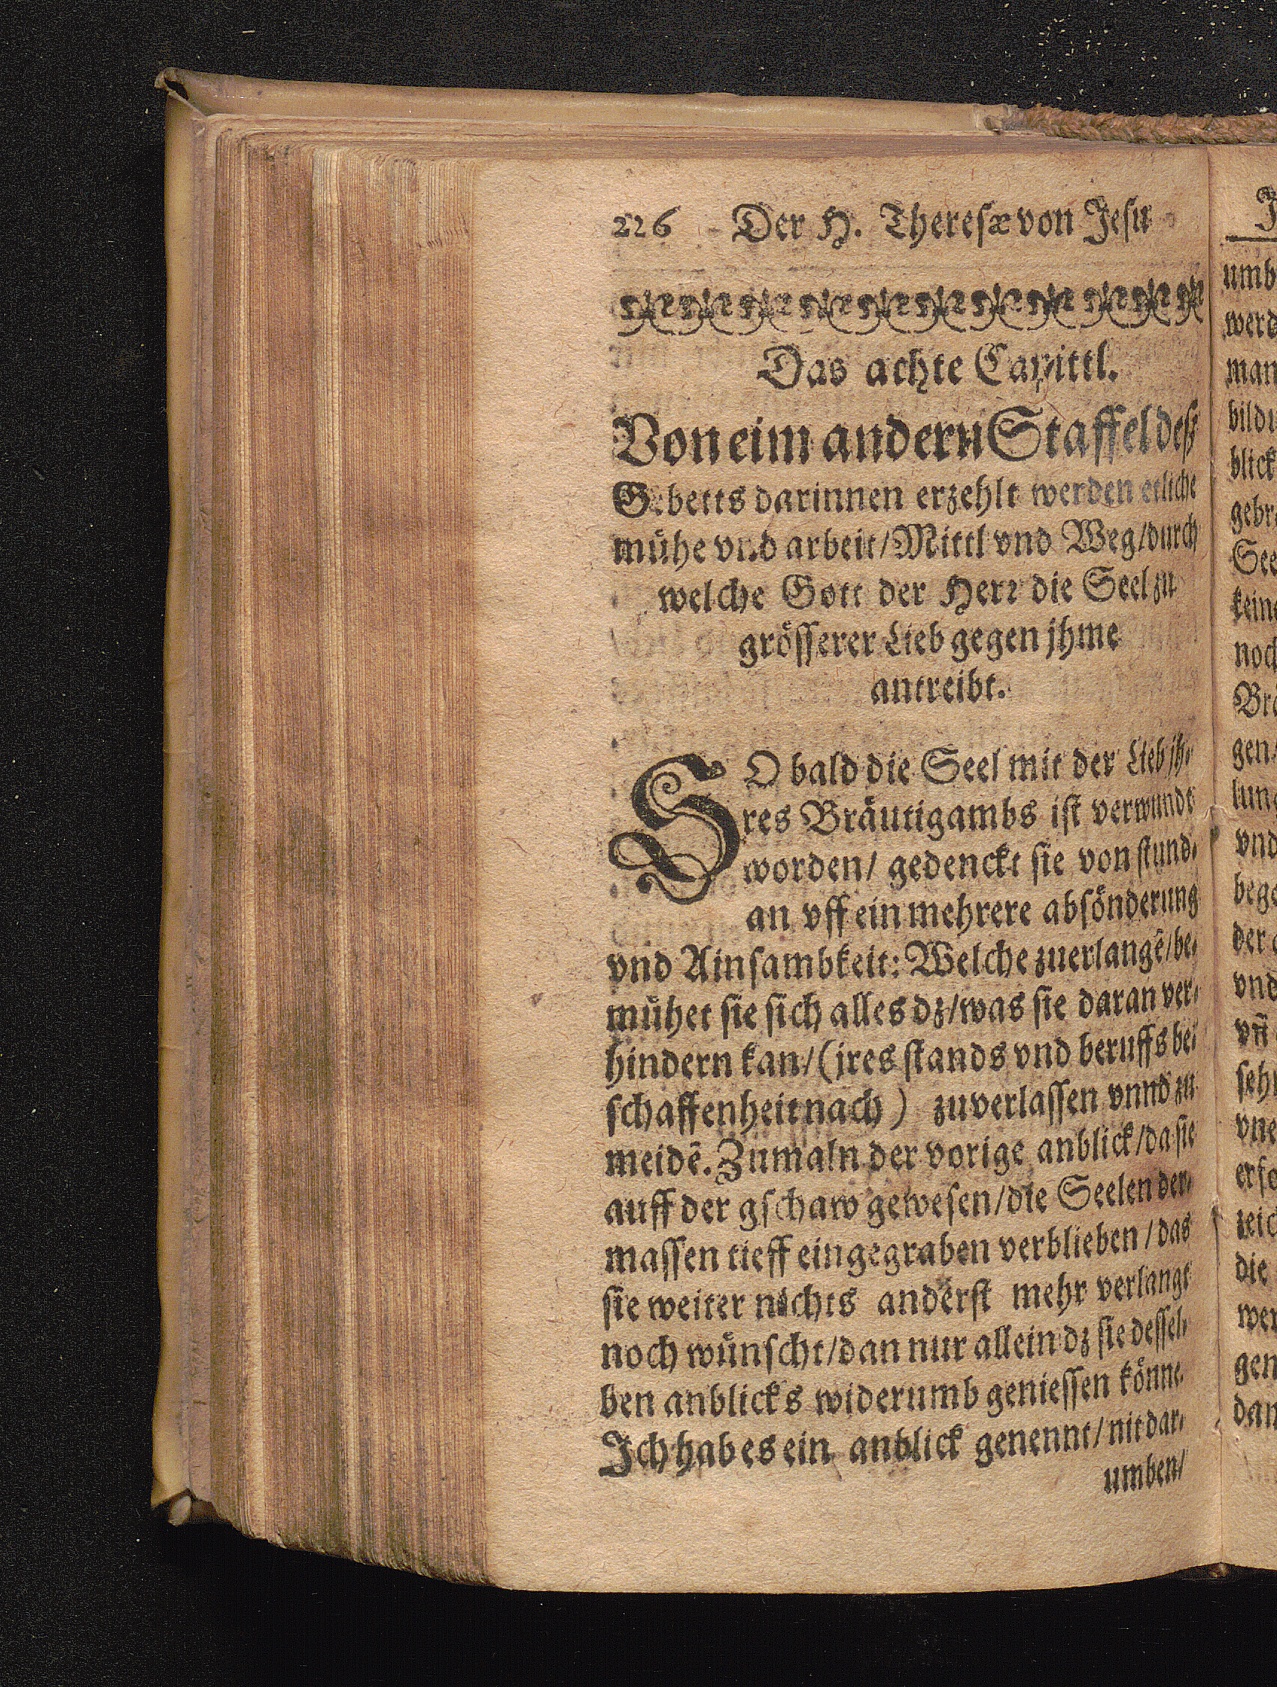 226 Der H. Theresæ von Jesu
Das achte Capittl.
Von eim andern Staffel deß
Gebetts darinnen erzehlt werden etliche
mühe vnd arbeit/Mittl vnd Weg/durch
welche Gott der Herr die Seel zu
grösserer Lieb gegen jhme
antreibt.
SO bald die Seel mit der Lieb jh-
res Bräutigambs ist verwundt
worden/ gedenckt sie von stund-
an vff ein mehrere absönderung
vnd Ainsambkeit: Welche zuerlangẽ/be-
mühet sie sich alles dz/was sie daran ver-
hindern kan/(jres stands vnd beruffs be-
schaffenheit nach) zuverlassen vnnd zu
meidẽ. Zumaln der vorige anblick/da sie
auff der gschaw gewesen/die Seelen der-
massen tieff eingegraben verblieben/das
sie weiter nichts anderst mehr verlangt
noch wünscht/dan nur allein dz sie dessel-
ben anblicks widerumb geniessen könne.
Ich hab es ein anblick genennt/nit dar-
umben/
umb
werd
man
bildu
blick
gebr
See
keine
noch
Brä
gen/
lung
vnd
bege
der
vnd
vñ
seh
vne
erfo
zeic
die
wer
gen
dan